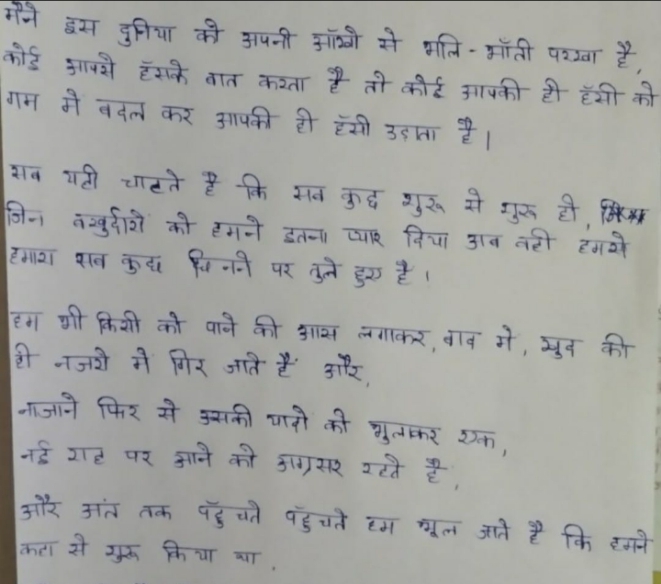 मैने इस दुनिया को अपनी आँखो से भाति-भाँती परखा है,
कोई आपसे हँसके बात करता है तो कोई आपकी ही हँसी को
गम मे बदल कर आपकी ही हँसी उड़ाता है।
सब यही चाहते है कि सब कुछ शुरू से शुरू हो,
जिन बखुर्दारो को हमने इतना प्यार दिया अब वही हमसे
हमारा सब कुछ छिनने पर तुले हुए है।
हम भी किसी को पाने की आस लगाकर, बाद मे, खुद की
ही नजरो में गिर जाते हैं और,
नाजाने फिर से उसकी यादो को भुलाकर एक,
नई राह पर आने को अग्रसर रहते है,
और अंत तक पहुँचते पहुँचते हम भूल जाते है कि हमने
कहा से शुरू किया था.